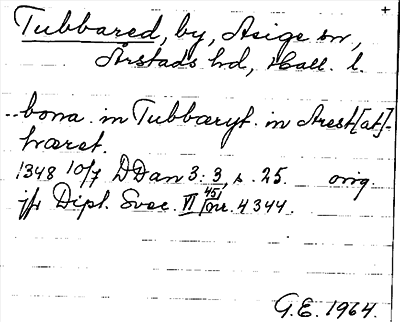 +
Tubbared, by, Asige sn,
Årstads hd, Hall. l.
..bona. in Tubbæryt. in Arest[at]-
hæret.
1348 10/7 DDan 3:3, s. 25. orig.
jfr Dipl. Svec. VI (45) nr. 4344.
G.E. 1964.